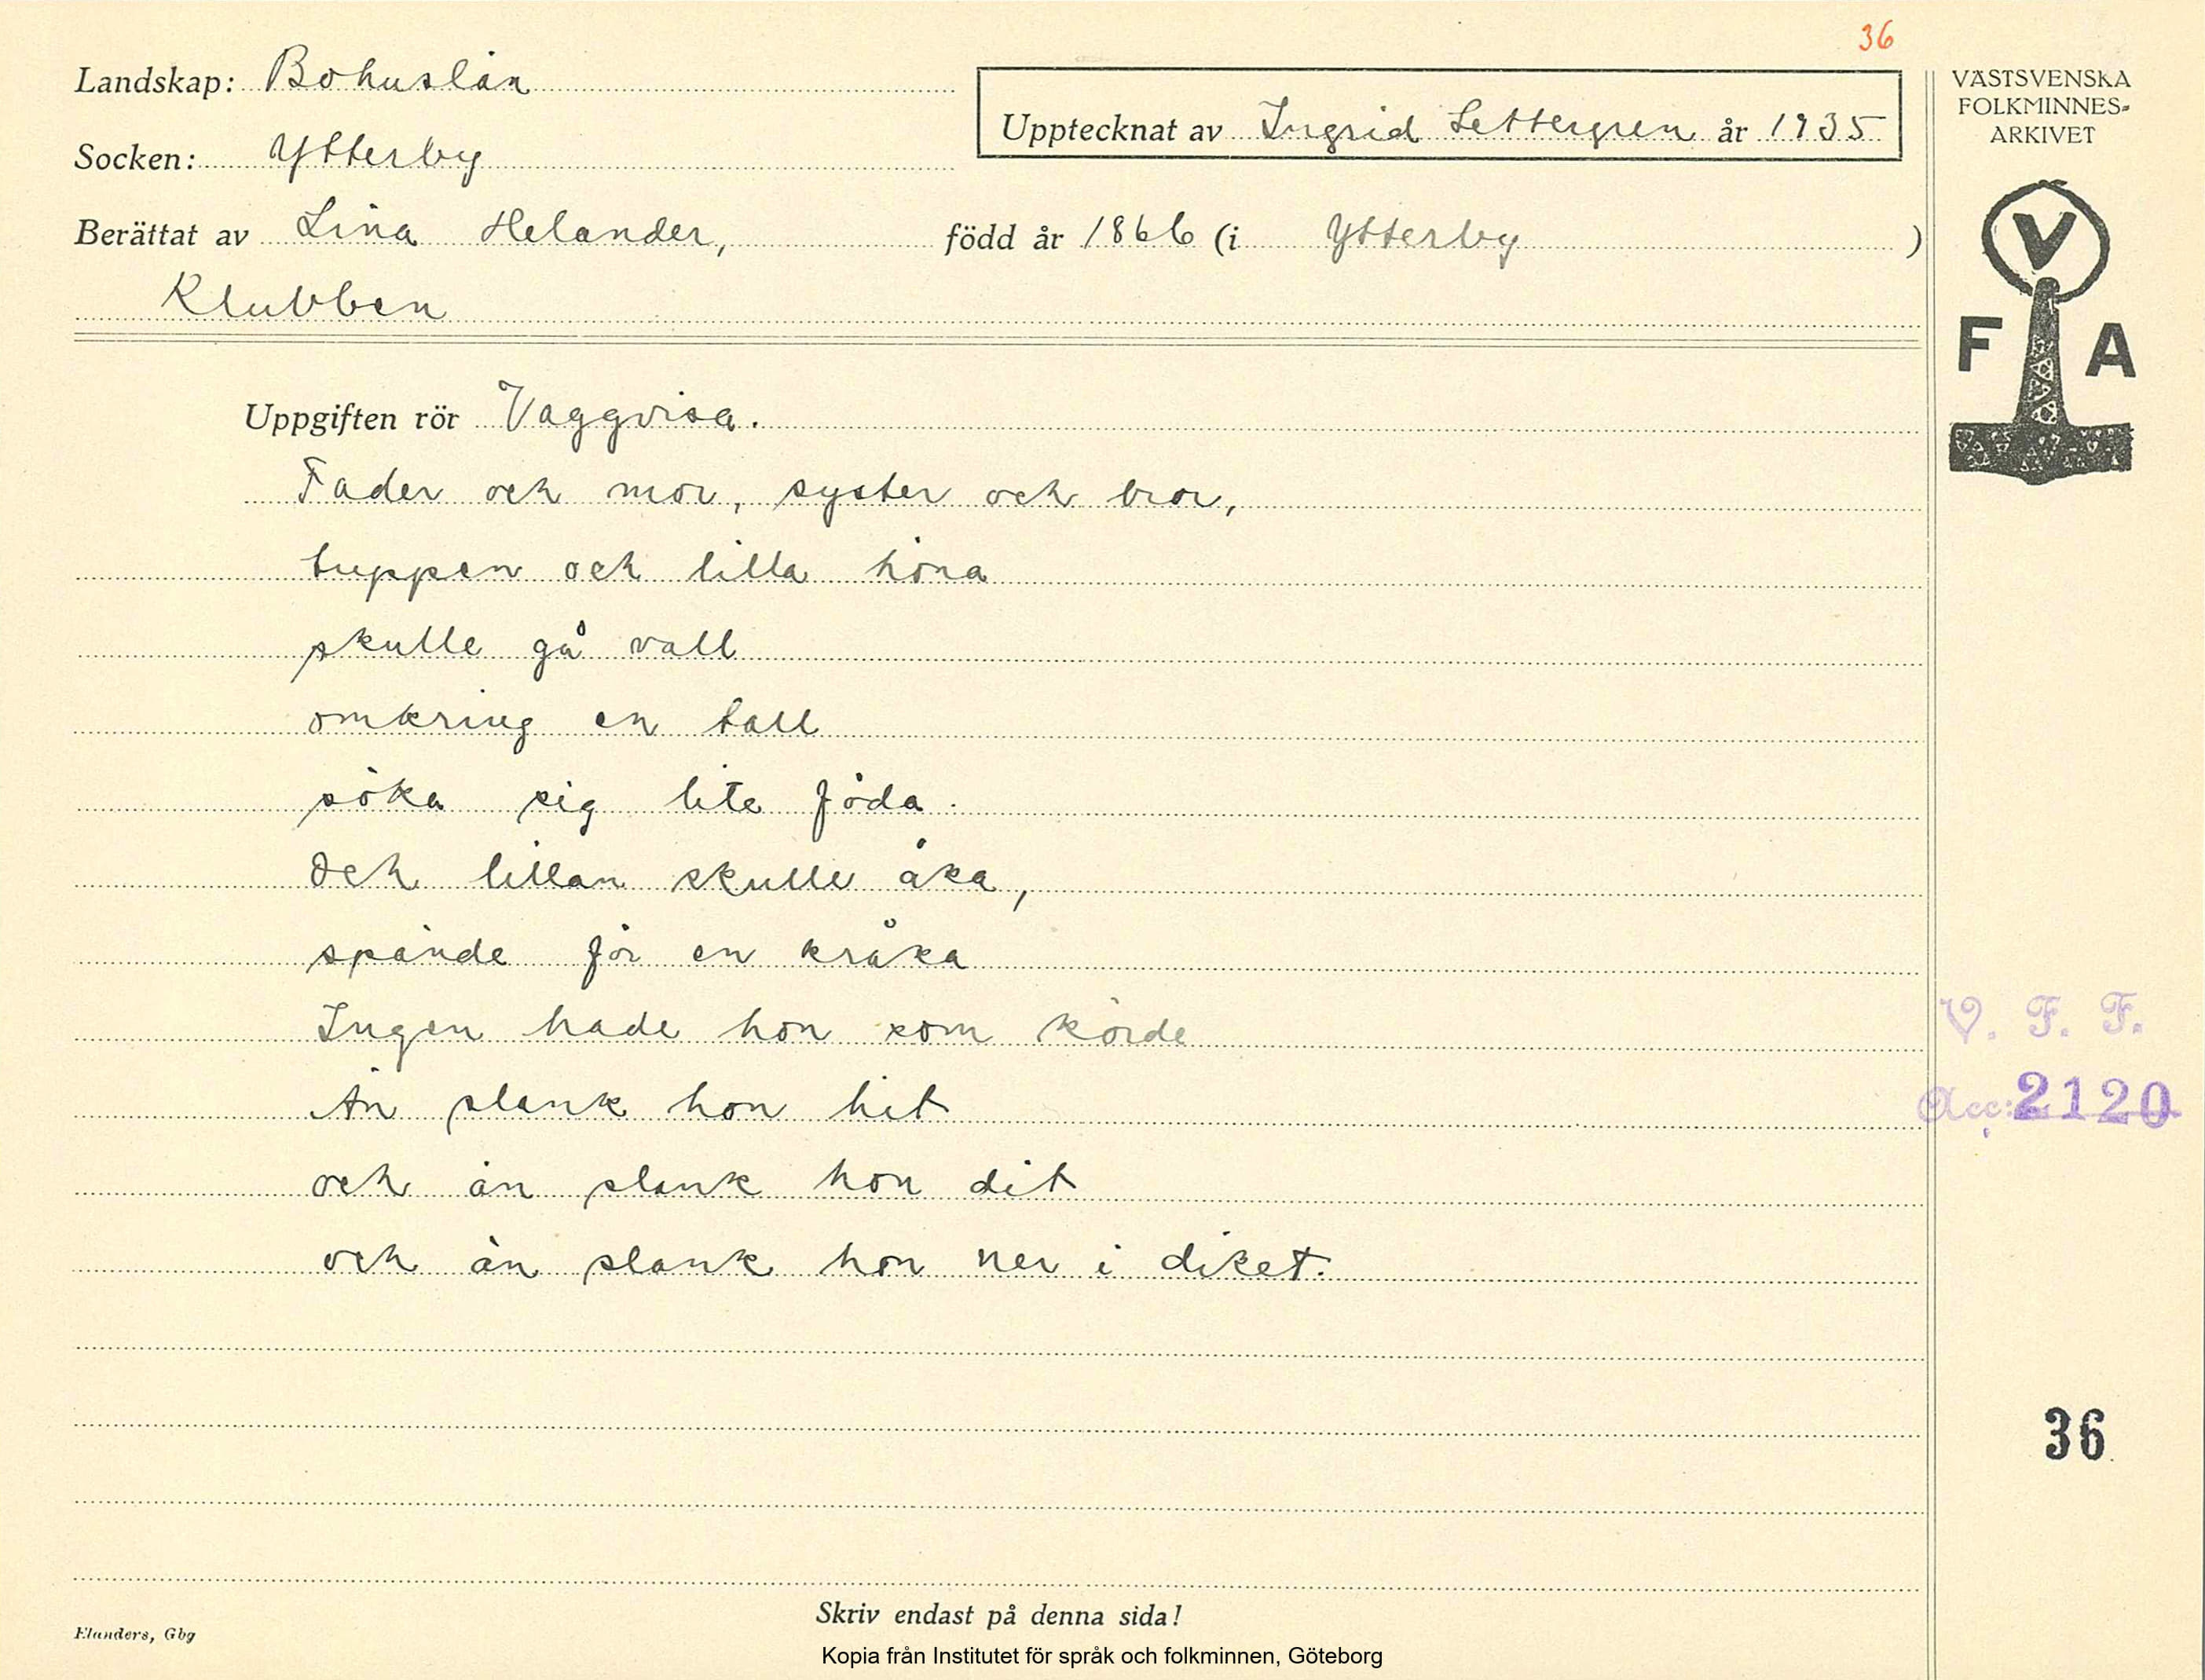 36
Landskap: Bohuslän
Upptecknat av Ingrid Settergren år 1935
VÄSTSVENSKA
FOLKMINNES-
ARKIVET
Socken: Ytterby
Berättat av Lina Helander, född år 1866 (i Ytterby )
Klubben
V
F A
Uppgiften rör Vaggvisa.
Fader och mor, syster och bror,
tuppen och lilla höna
skulle gå vall
omkring en tall
söka sig lite föda.
Och lillan skulle åka,
spände för en kråka
Ingen hade hon som körde
Än slank hon hit
och än slank hon dit
och än slank hon ner i diket.
V. F. F.
Acc: 2120
36
Skriv endast på denna sida!
Elanders, Gbg
Kopia från Institutet för språk och folkminnen, Göteborg